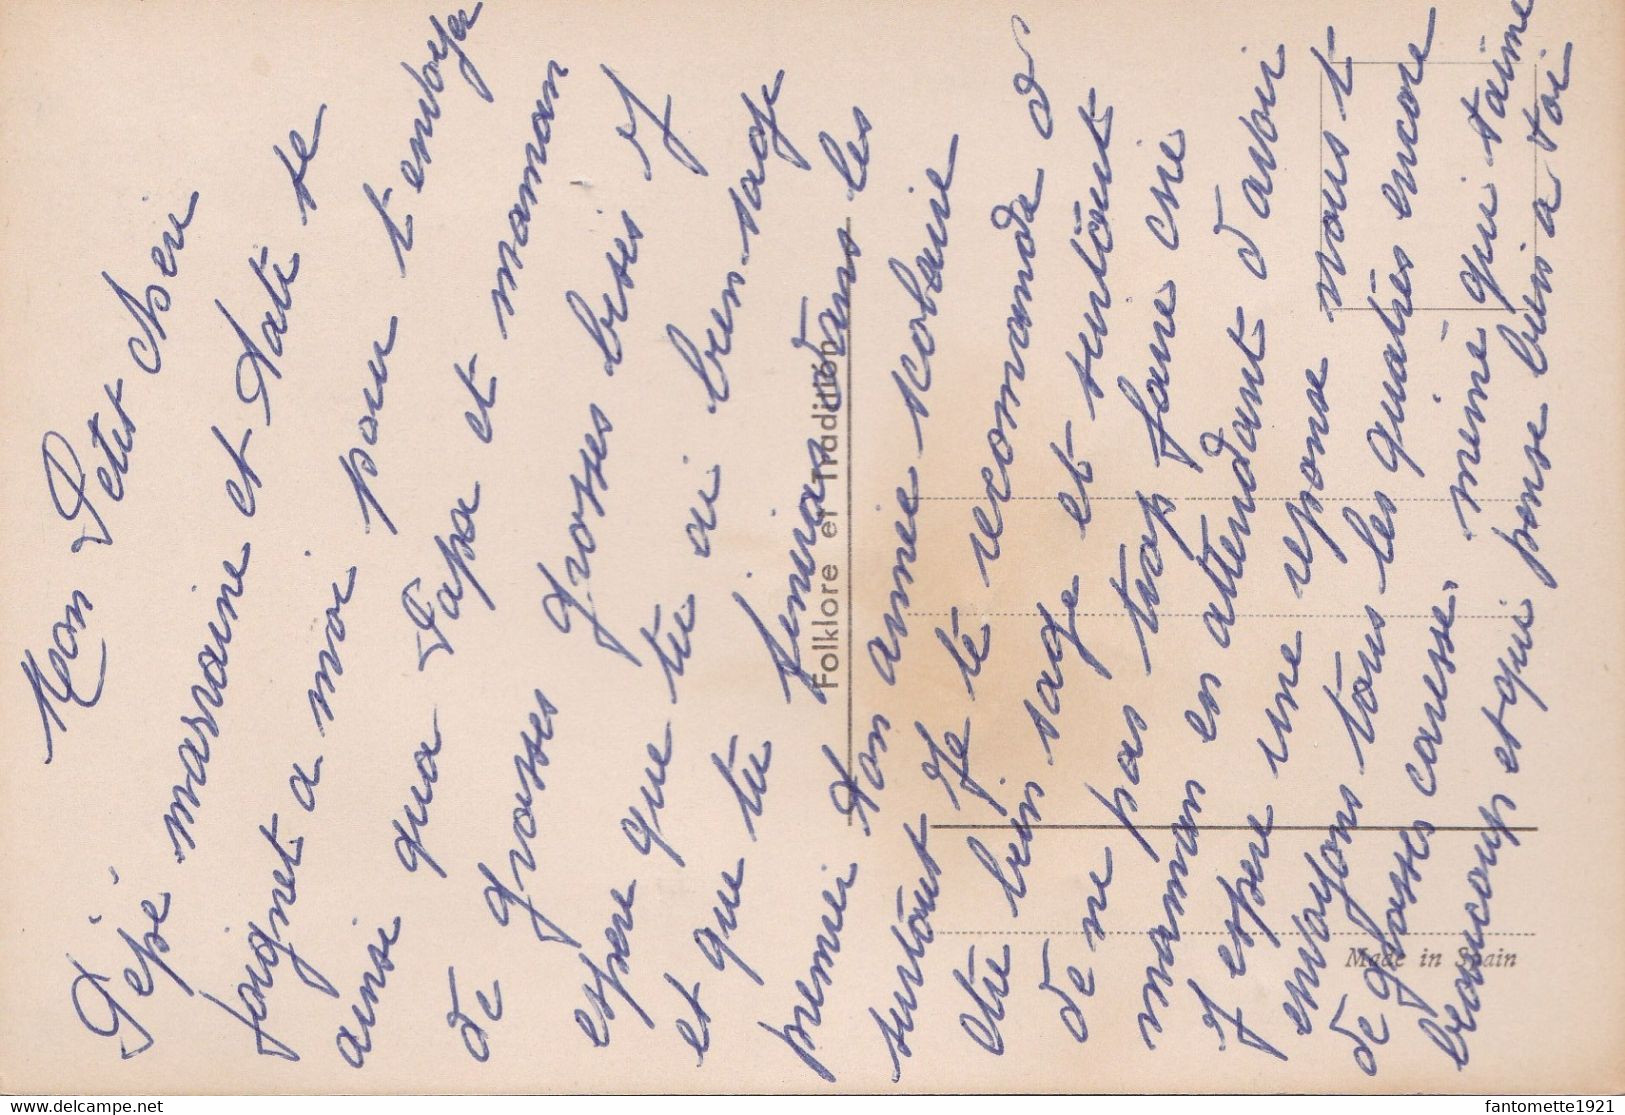 Mon Petit cheri
Pépé marraine et tati se
joignet a moi pour t envoyer
ainsi qua Papa et maman
de grosses grosses bises j
espere que tu ai bien sage
et que tu finiras dans les
premier ton annee scolaire
surtout Je te recommande d
etre bien sage et surtout
de ne pas trop faire crie
maman en attendant d avoir
j espere une reponse nous t
envoyons tous les quatres encore
de grosses caresse. mémé qui taime
beaucoup et qui pense bien a toi
Folklore et Tradition
Made in Spain
www.delcampe.net
fantomette1921